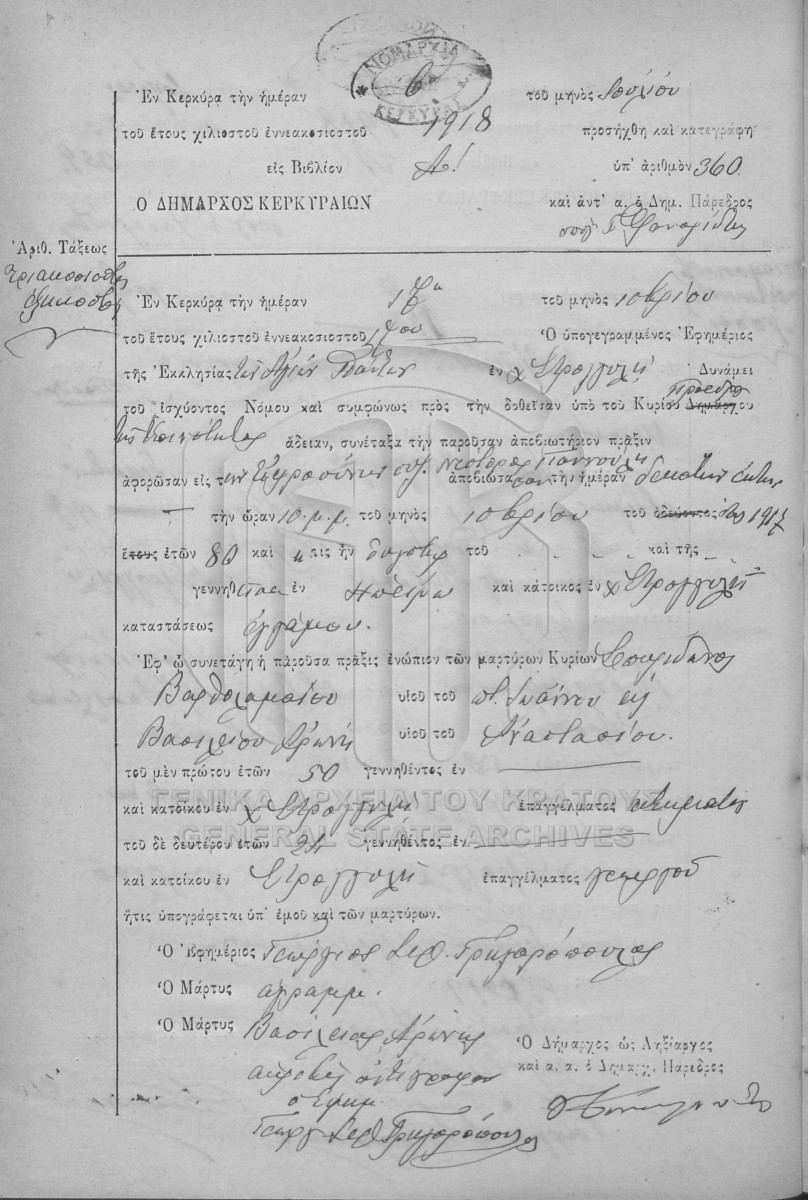 ΝΟΜΑΡΧΙΑ
ΚΕΡΚΥΡΑΣ
Ἐν Κερκύρᾳ τὴν ἡμέραν 6 τοῦ μηνὸς Ἰουλίου
τοῦ ἔτους χιλιοστοῦ ἐννεακοσιοστοῦ 1918 προσήχθη καὶ κατεγράφη
εἰς Βιβλίον Α! ὑπ' ἀριθμὸν 360
Ο ΔΗΜΑΡΧΟΣ ΚΕΡΚΥΡΑΙΩΝ καὶ ἀντ' α. ὁ Δημ. Πάρεδρος
Ἀριθ. Τάξεως
Τριακοσιοστὸς
ἑξηκοστὸς
Ἐν Κερκύρᾳ τὴν ἡμέραν 17η τοῦ μηνὸς 10βρίου
τοῦ ἔτους χιλιοστοῦ ἐννεακοσιοστοῦ 17ου Ὁ ὑπογεγραμμένος Ἐφημέριος
τῆς Ἐκκλησίας τῶν Ἁγίων Πάντων ἐν χ Στρογγυλῇ Δυνάμει
τοῦ ἰσχύοντος Νόμου καὶ συμφώνως πρὸς τὴν δοθεῖσαν ὑπὸ τοῦ Κυρίου Δημάρχου Προέδρου
τῆς Κοινότητος ἄδειαν, συνέταξα τὴν παροῦσαν ἀποβιωτήριον πρᾶξιν
ἀφορῶσαν εἰς τὴν Εὐφροσύνην συζ. Νεστορος Γιαννούλη ἀποβιώσασαν τὴν ἡμέραν δεκάτην ἕκτην
τὴν ὥραν 10 μ.μ. τοῦ μηνὸς 10βρίου τοῦ ὁδεύοντος ἔτους 1917
ἔτους ἐτῶν 80 καὶ τις ἦν θυγάτηρ τοῦ καὶ τῆς
γεννηθεῖσα ἐν Ἠπείρῳ καὶ κάτοικος ἐν χ Στρογγυλῇ
καταστάσεως ἐγγάμου.
Ἐφ' ᾧ συνετάγη ἡ πάρουσα πρᾶξις ἐνώπιον τῶν μαρτύρων Κυρίων Σπυρίδωνος
Βαρθολομαίου υἱοῦ τοῦ π. Ἰωάννου καὶ
Βασιλείου Ἀρώνη υἱοῦ τοῦ Ἀναστασίου.
τοῦ μὲν πρώτου ἐτῶν 50 γεννηθέντος ἐν
καὶ κατοίκου ἐν χ Στρογγυλῇ ἐπαγγέλματος κτηματίου
ΓΕΝΙΚΑ ΑΡΧΕΙΑ ΤΟΥ ΚΡΑΤΟΥΣ
GENERAL STATE ARCHIVES
τοῦ δὲ δευτέρου ἐτῶν 24 γεννηθέντος ἐν
καὶ κατοίκου ἐν Στρογγυλῇ ἐπαγγέλματος γεωργοῦ
ἥτις ὑπογράφεται ὑπ' ἐμοῦ καὶ τῶν μαρτύρων.
Ὁ Ἐφημέριος Γεώργιος Γρηγορόπουλος
Ὁ Μάρτυς ἀγράμμ.
Ὁ Μάρτυς Βασίλειος Ἀρώνης
Ὁ Δήμαρχος ὡς Ληξίαρχος
καὶ α. α. ὁ Δημαρχ. Πάρεδρος
ἀκριβὲς ἀντίγραφον
ὁ Ἐφημ.
Γεώργ. Γρηγορόπουλος